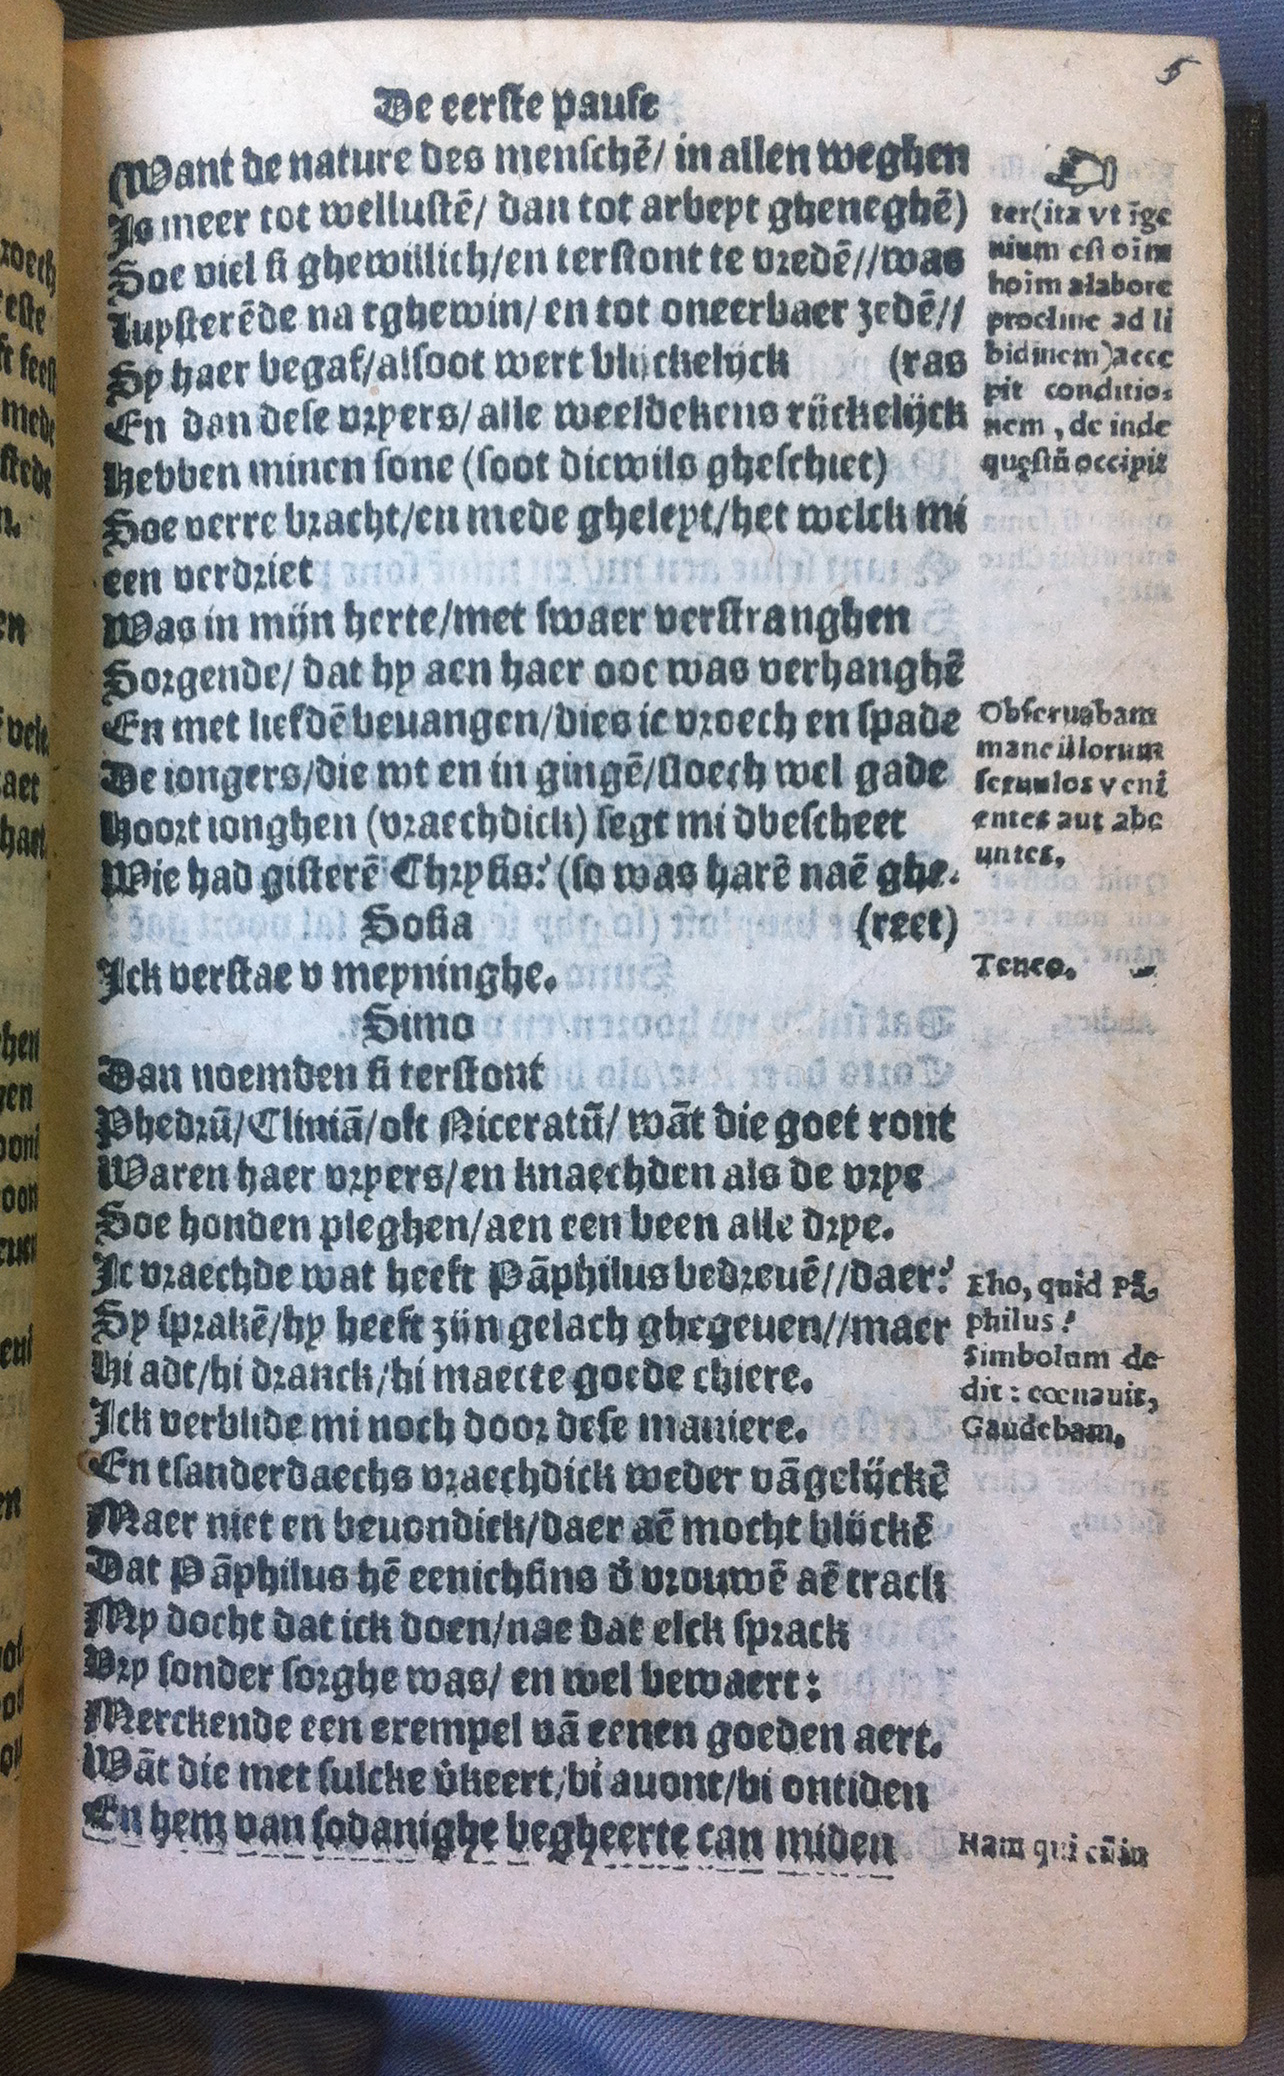 5
De eerste pause
(Want de nature des menschē/ in allen weghen
Is meer tot wellustē/ dan tot arbeyt gheneghē)
Soe viel si ghewillich/en terstont te vredē//was
Luysterēde na tghewin/ en tot oneerbaer zedē//
Sy haer begaf/alsoot wert blijckelijck (ras
En dan dese vryers/alle weeldekens rijckelijck
Hebben minen sone (soot dicwils gheschiet)
Soe verre bracht/en mede gheleyt/het welck mi
een verdriet
Was in mijn herte/met swaer verstranghen
Sorgende/ dat hy aen haer ooc was verhanghē
En met liefdē beuangen/dies ic vroech en spade
De iongers/die wt en in gingē/sloech wel gade
Hoort ionghen (vraechdick) segt mi dbescheet
Wie had gisterē Chrysis? (so was harē naē ghe-
Sosia (reet)
Ick verstae v meyninghe.
Simo
Dan noemden si terstont
Phedrū/Cliniā/oft Niceratū/ wāt die goet ront
Waren haer vryers/en knaechden als de vrye
Soe honden pleghen/aen een been alle drye.
Ic vraechde wat heeft Pāphilus bedreuē//daer?
Sy sprakē/hy heeft zijn gelach ghegeuen//maer
Hi adt/hi dranck/hi maecte goede chiere.
Ick verblide mi noch door dese maniere.
En tsanderdaechs vraechdick weder vāgelijckē
Maer niet en beuondick/daer aē mocht blijckē
Dat Pāphilus hē eenichsins d̄ vrouwē aē track
My docht dat ick doen/nae dat elck sprack
Vry sonder sorghe was/ en wel bewaert:
Merckende een exempel vā eenen goeden aert.
Wāt die met sulcke v̄keert/bi auont/bi ontiden
En hem van sodanighe begheerte can miden
ter(ita vt īge
nium est oīm
hoīm alabore
procliue ad li
bidinem)acce
pit conditio-
nem, de inde
quęstū occipit
Obseruabam
mane illorum
seruulos veni
entes aut abe
untes,
Teneo.
Eho, quid Pā
philus?
Simbolum de
dit: cœnauit,
Gaudebam,
Nam qui cū in